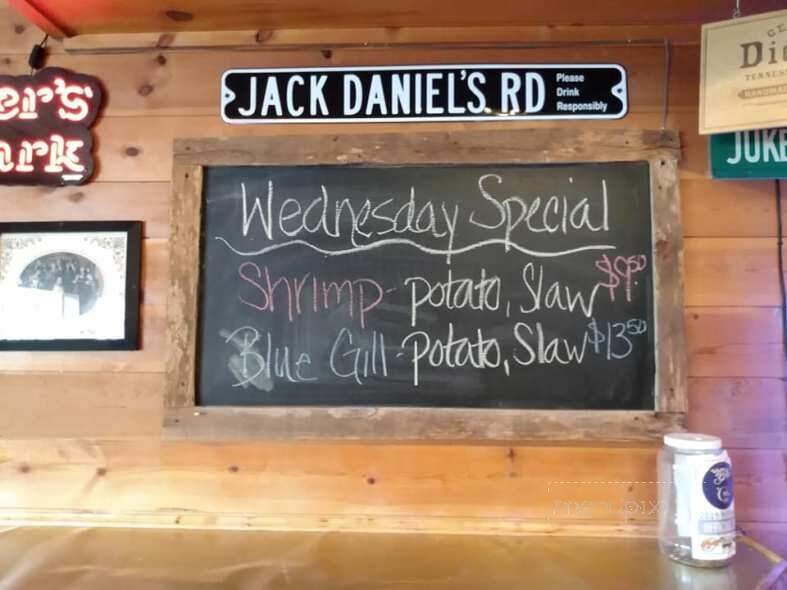 JACK DANIEL'S RD
Please
Drink
Responsibly
er's
ark
TENNESS
HANDMA
JUKE
Wednesday Special
Shrimp - potato, Slaw $9.50
Blue Gill - potato, Slaw $13.50